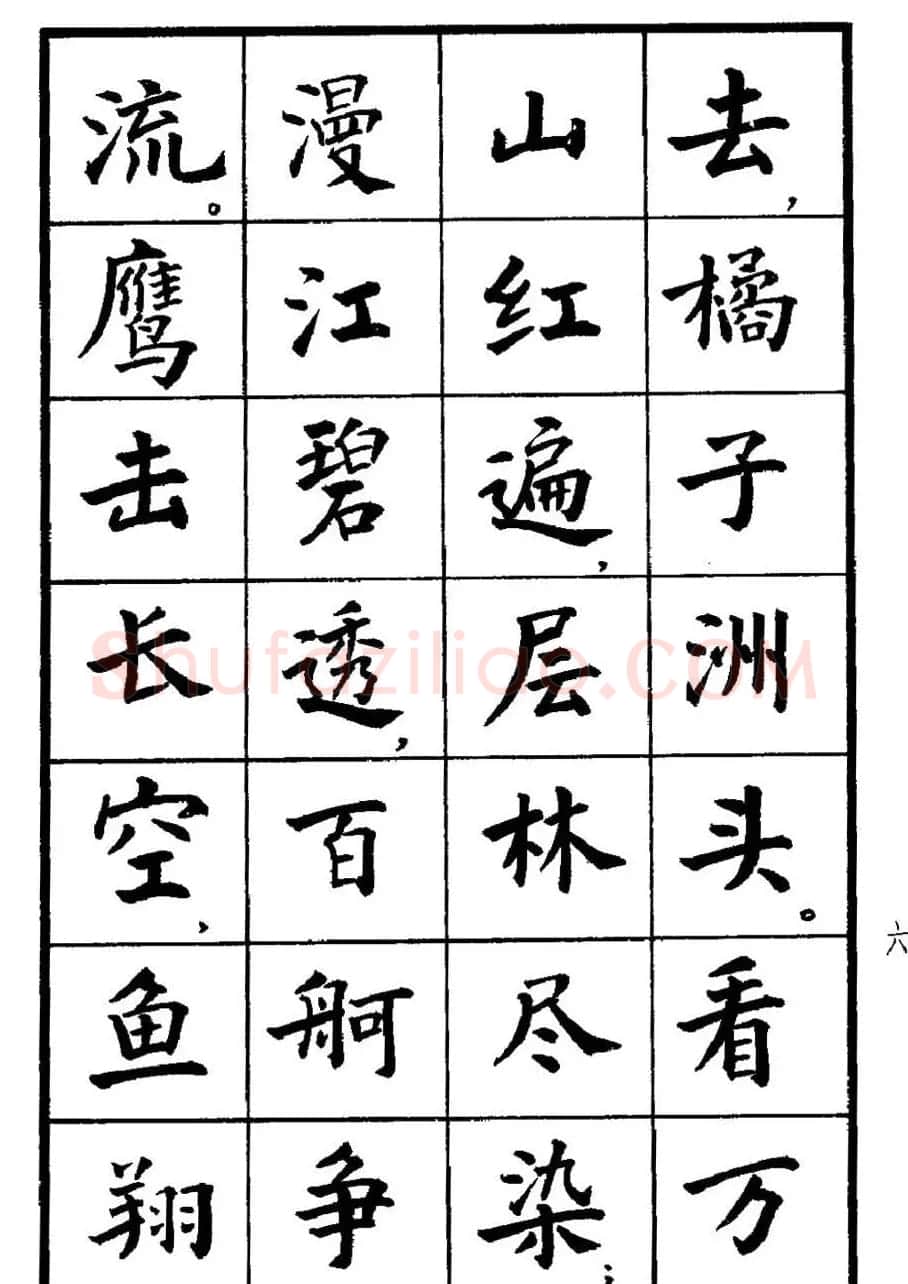 去,橘子洲头。看万
山红遍,层林尽染;
漫江碧透,百舸争
流。鹰击长空,鱼翔
六
Shufaziliao.COM